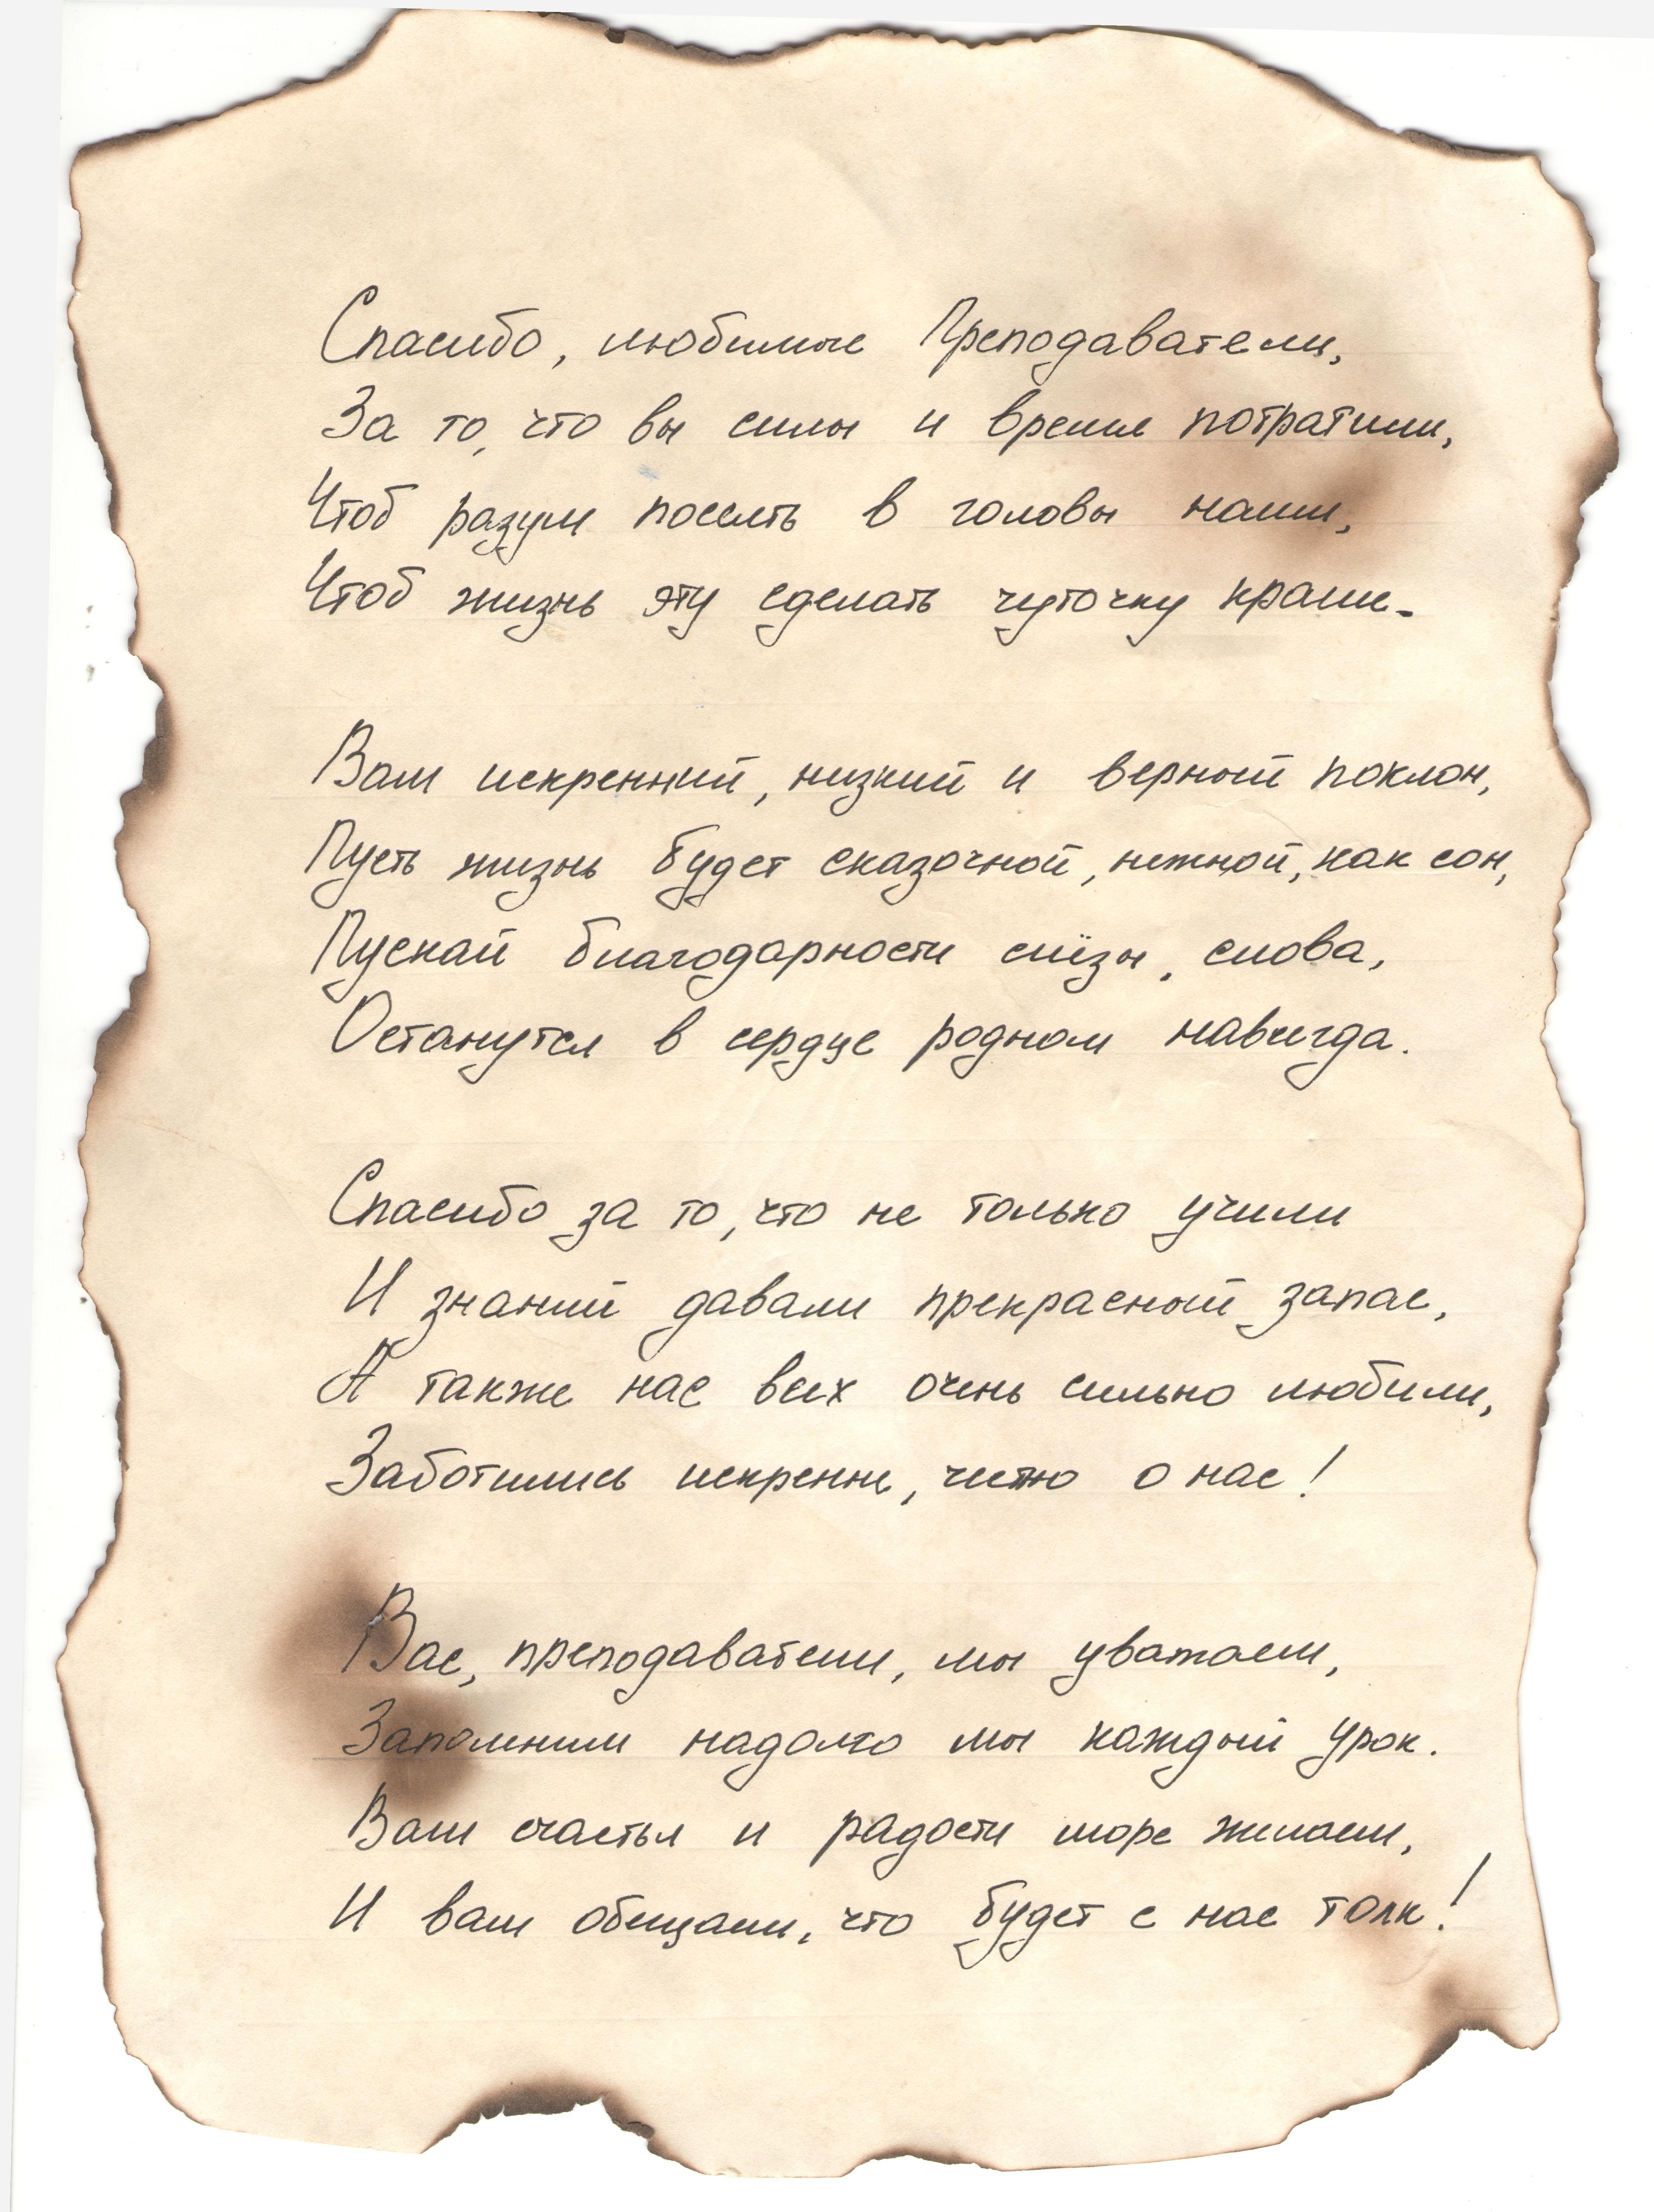 Спасибо, любимые Преподаватели,
За то, что вы силы и время потратили,
Чтоб разум посеять в головы наши,
Чтоб жизнь эту сделать чуточку краше.
Вам искренний, низкий и верный поклон,
Пусть жизнь будет сказочной, нежной, как сон,
Пускай благодарности слёзы, слова,
Останутся в сердце родном навсегда.
Спасибо за то, что не только учили
И знаний давали прекрасный запас,
А также нас всех очень сильно любили,
Заботились искренне, честно о нас!
Вас, преподаватели, мы уважаем,
Запомним надолго мы каждый урок.
Вам счастья и радости море желаем,
И вам обещаем, что будет с нас толк!